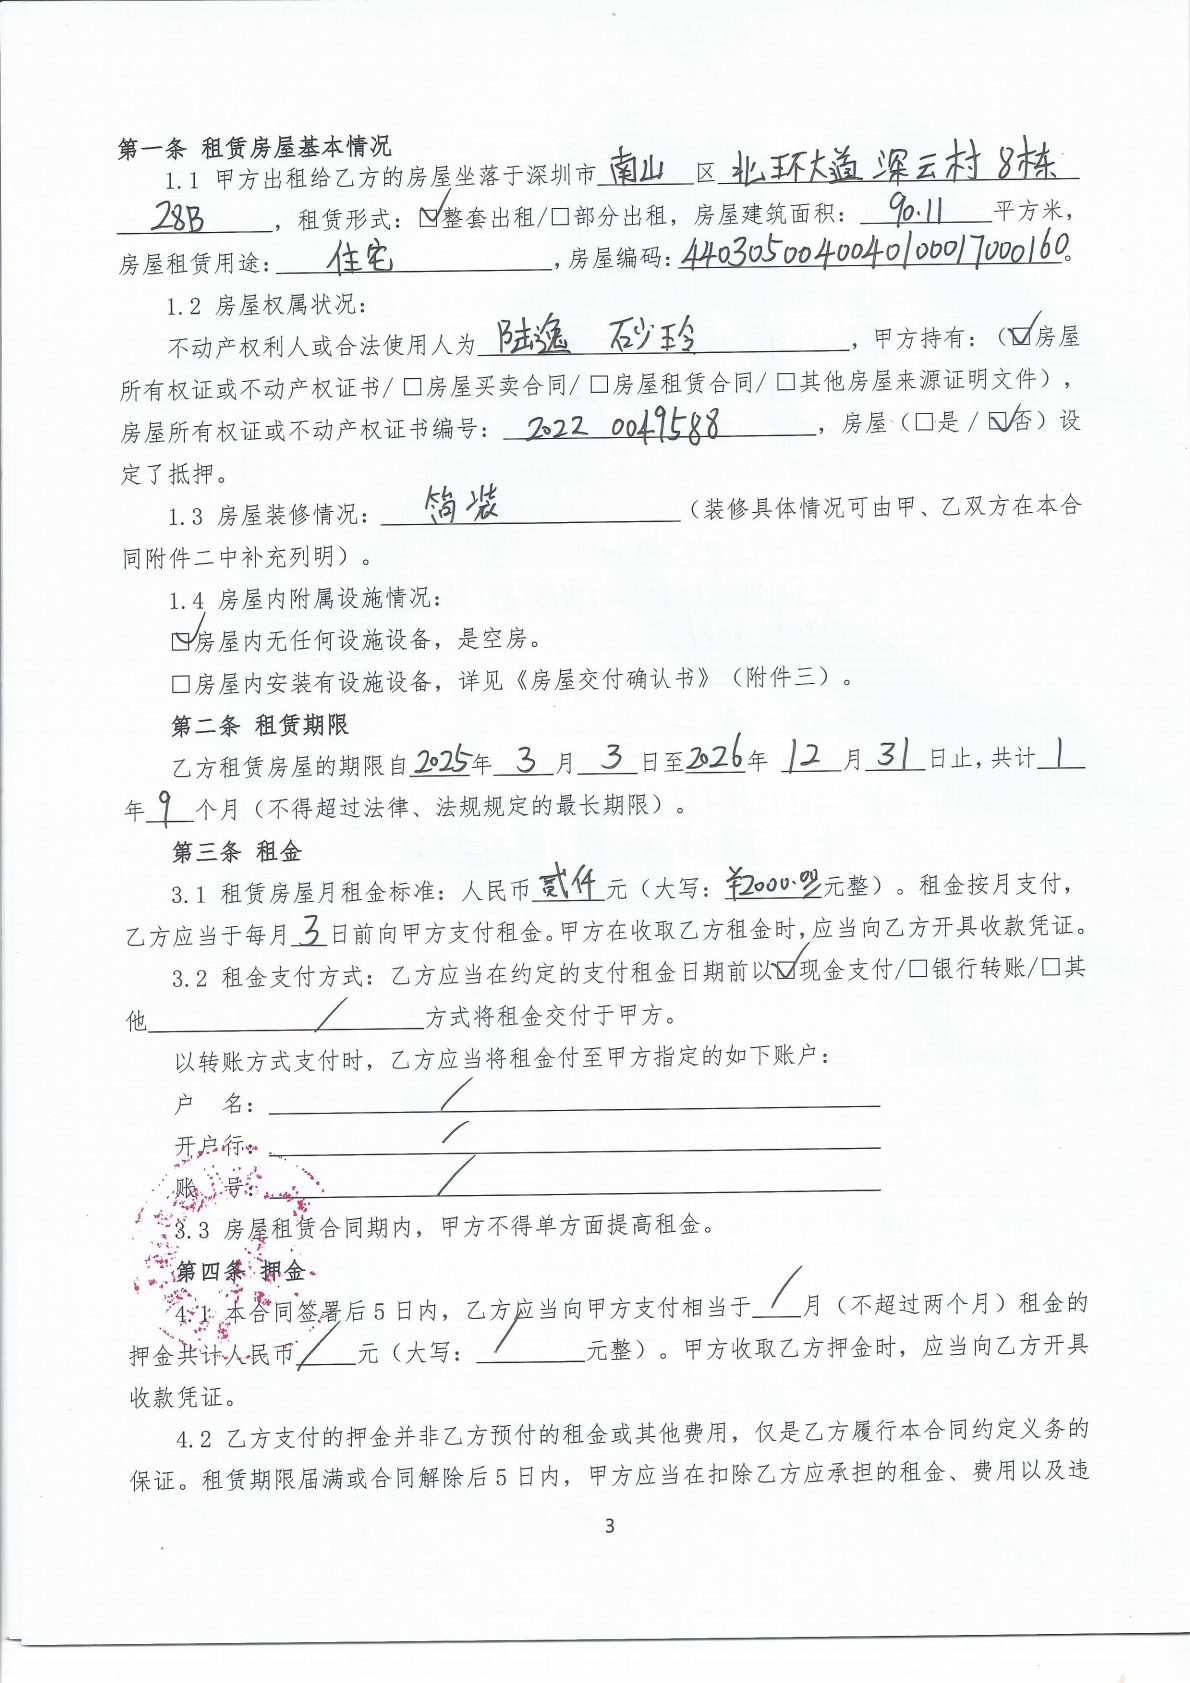 第一条 租赁房屋基本情况
1.1 甲方出租给乙方的房屋坐落于深圳市 南山 区 北环大道 深云村 8栋
28B ，租赁形式：☑整套出租/□部分出租，房屋建筑面积： 90.11 平方米，
房屋租赁用途： 住宅 ，房屋编码：4403050040040100017000160。
1.2 房屋权属状况：
不动产权利人或合法使用人为 陆逸 石少玲 ，甲方持有：（☑房屋
所有权证或不动产权证书/□房屋买卖合同/□房屋租赁合同/□其他房屋来源证明文件），
房屋所有权证或不动产权证书编号： 2022 0049588 ，房屋（□是/☑否）设
定了抵押。
1.3 房屋装修情况： 简装 （装修具体情况可由甲、乙双方在本合
同附件二中补充列明）。
1.4 房屋内附属设施情况：
☑房屋内无任何设施设备，是空房。
□房屋内安装有设施设备，详见《房屋交付确认书》（附件三）。
第二条 租赁期限
乙方租赁房屋的期限自2025年 3 月 3 日至2026年 12 月 31 日止，共计 1
年 9 个月（不得超过法律、法规规定的最长期限）。
第三条 租金
3.1 租赁房屋月租金标准：人民币 贰仟 元（大写： ¥2000.00 元整）。租金按月支付，
乙方应当于每月 3 日前向甲方支付租金。甲方在收取乙方租金时，应当向乙方开具收款凭证。
3.2 租金支付方式：乙方应当在约定的支付租金日期前以☑现金支付/□银行转账/□其
他 / 方式将租金交付于甲方。
以转账方式支付时，乙方应当将租金付至甲方指定的如下账户：
户 名： /
开户行： /
账 号： /
3.3 房屋租赁合同期内，甲方不得单方面提高租金。
第四条 押金
4.1 本合同签署后5日内，乙方应当向甲方支付相当于 / 月（不超过两个月）租金的
押金共计人民币 / 元（大写： / 元整）。甲方收取乙方押金时，应当向乙方开具
收款凭证。
4.2 乙方支付的押金并非乙方预付的租金或其他费用，仅是乙方履行本合同约定义务的
保证。租赁期限届满或合同解除后5日内，甲方应当在扣除乙方应承担的租金、费用以及违
3